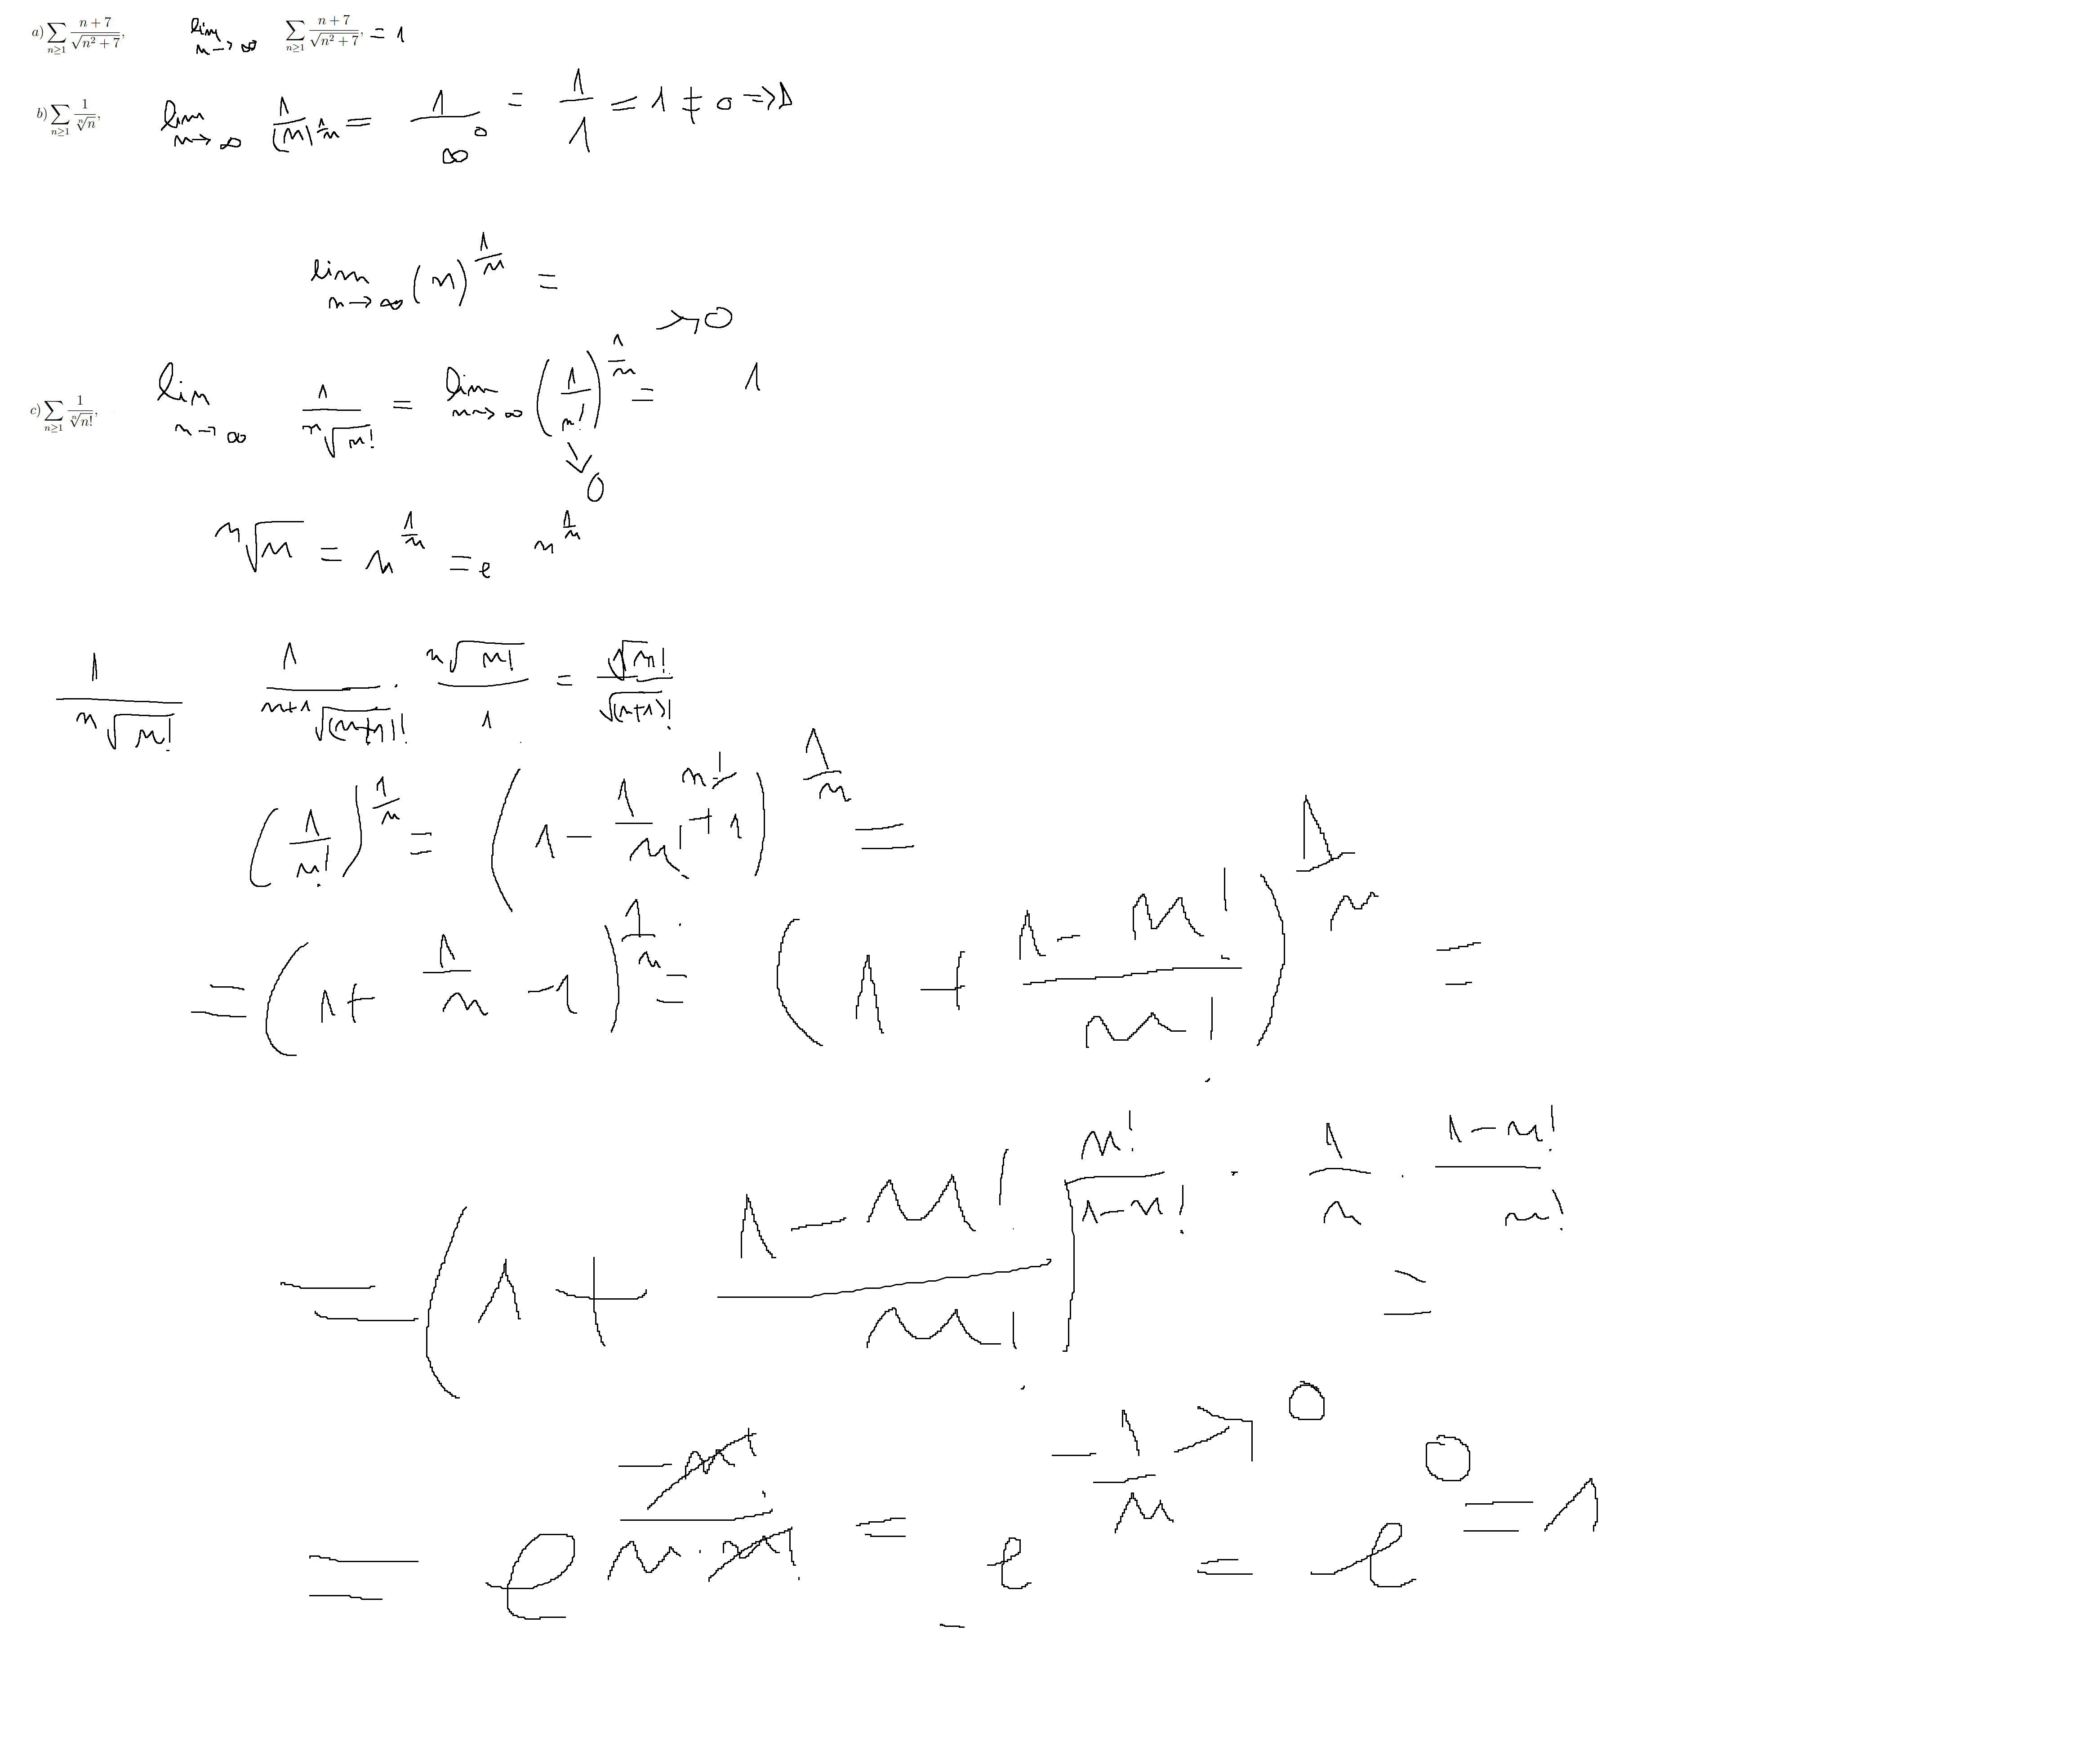 a) ∑_{n≥1} (n+7)/√(n²+7), lim_{n→∞} ∑_{n≥1} (n+7)/√(n²+7), = 1
b) ∑_{n≥1} 1/ⁿ√n, lim_{n→∞} 1/(n)^{1/n} = 1/∞⁰ = 1/1 = 1 ≠ 0 => D
lim_{n→∞} (n)^{1/n} =
c) ∑_{n≥1} 1/ⁿ√n!, lim_{n→∞} 1/ⁿ√n! = lim_{n→∞} (1/n! → 0)^{1/n → 0} = 1
ⁿ√n = n^{1/n} = e^{n^{1/n}}
1/ⁿ√n! 1/ⁿ⁺¹√(n+1)! · ⁿ√n!/1 = √n!/√(n+1)!
(1/n!)^{1/n} = (1 - 1/n! + 1)^{1/n} =
= (1 + 1/n - 1)^{1/n} = (1 + (1-n!)/n!)^{1/n} =
= (1 + (1-n!)/n!)^{n!/(1-n!) · 1/n · (1-n!)/n!} =
= e^{-n!/(n·n!)} = e^{-1/n → 0} = e⁰ = 1